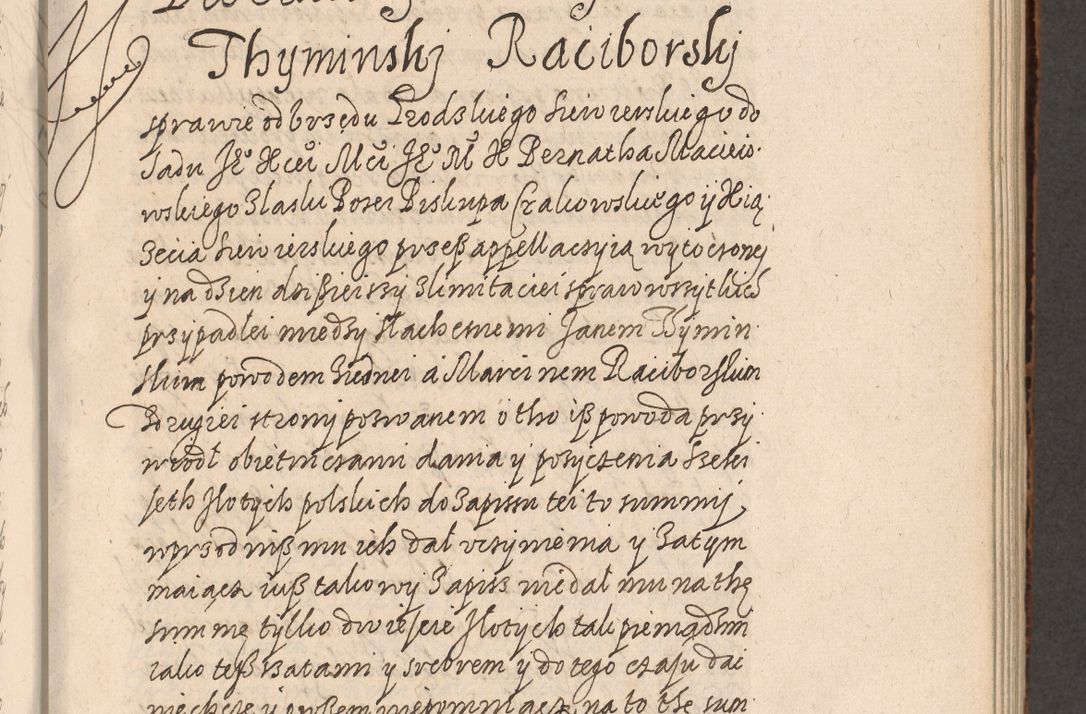 Thyminskj Raciborskj
sprawie od Vrzędu Grodskiego Siewierskiego do
Sadu Je° Xcei Mci Je° M X Bernatha Macieio
wskiego z Łaski Bozei Biskupa Crakowskiego ÿ Xią
zecia Siewierskiego przeß appellaczyią wytoczonej
y na dzien dzißieiszy z limitaciei spraw wszytkich
przypadłei miedzy Slachetnemi Janem Tymin
skim powodem z iednei a Marcinem Raciborskim
z drugiei strony pozwanem o tho iß powoda przy
wiodł obietniczami dania y pozyczenia szesci
seth złotych polskich do zapissu tei to summij
wprzod niß mu ich dał vczynienia y zatym
maiącz iuß takowy zapiss nie dał mu na thę
summę tylko dwiescie złotych tak pieniądzmi
iako teß szatami y srebrem y do tego czasu dai
nie chcze y owßem niepomniącz na to the sum